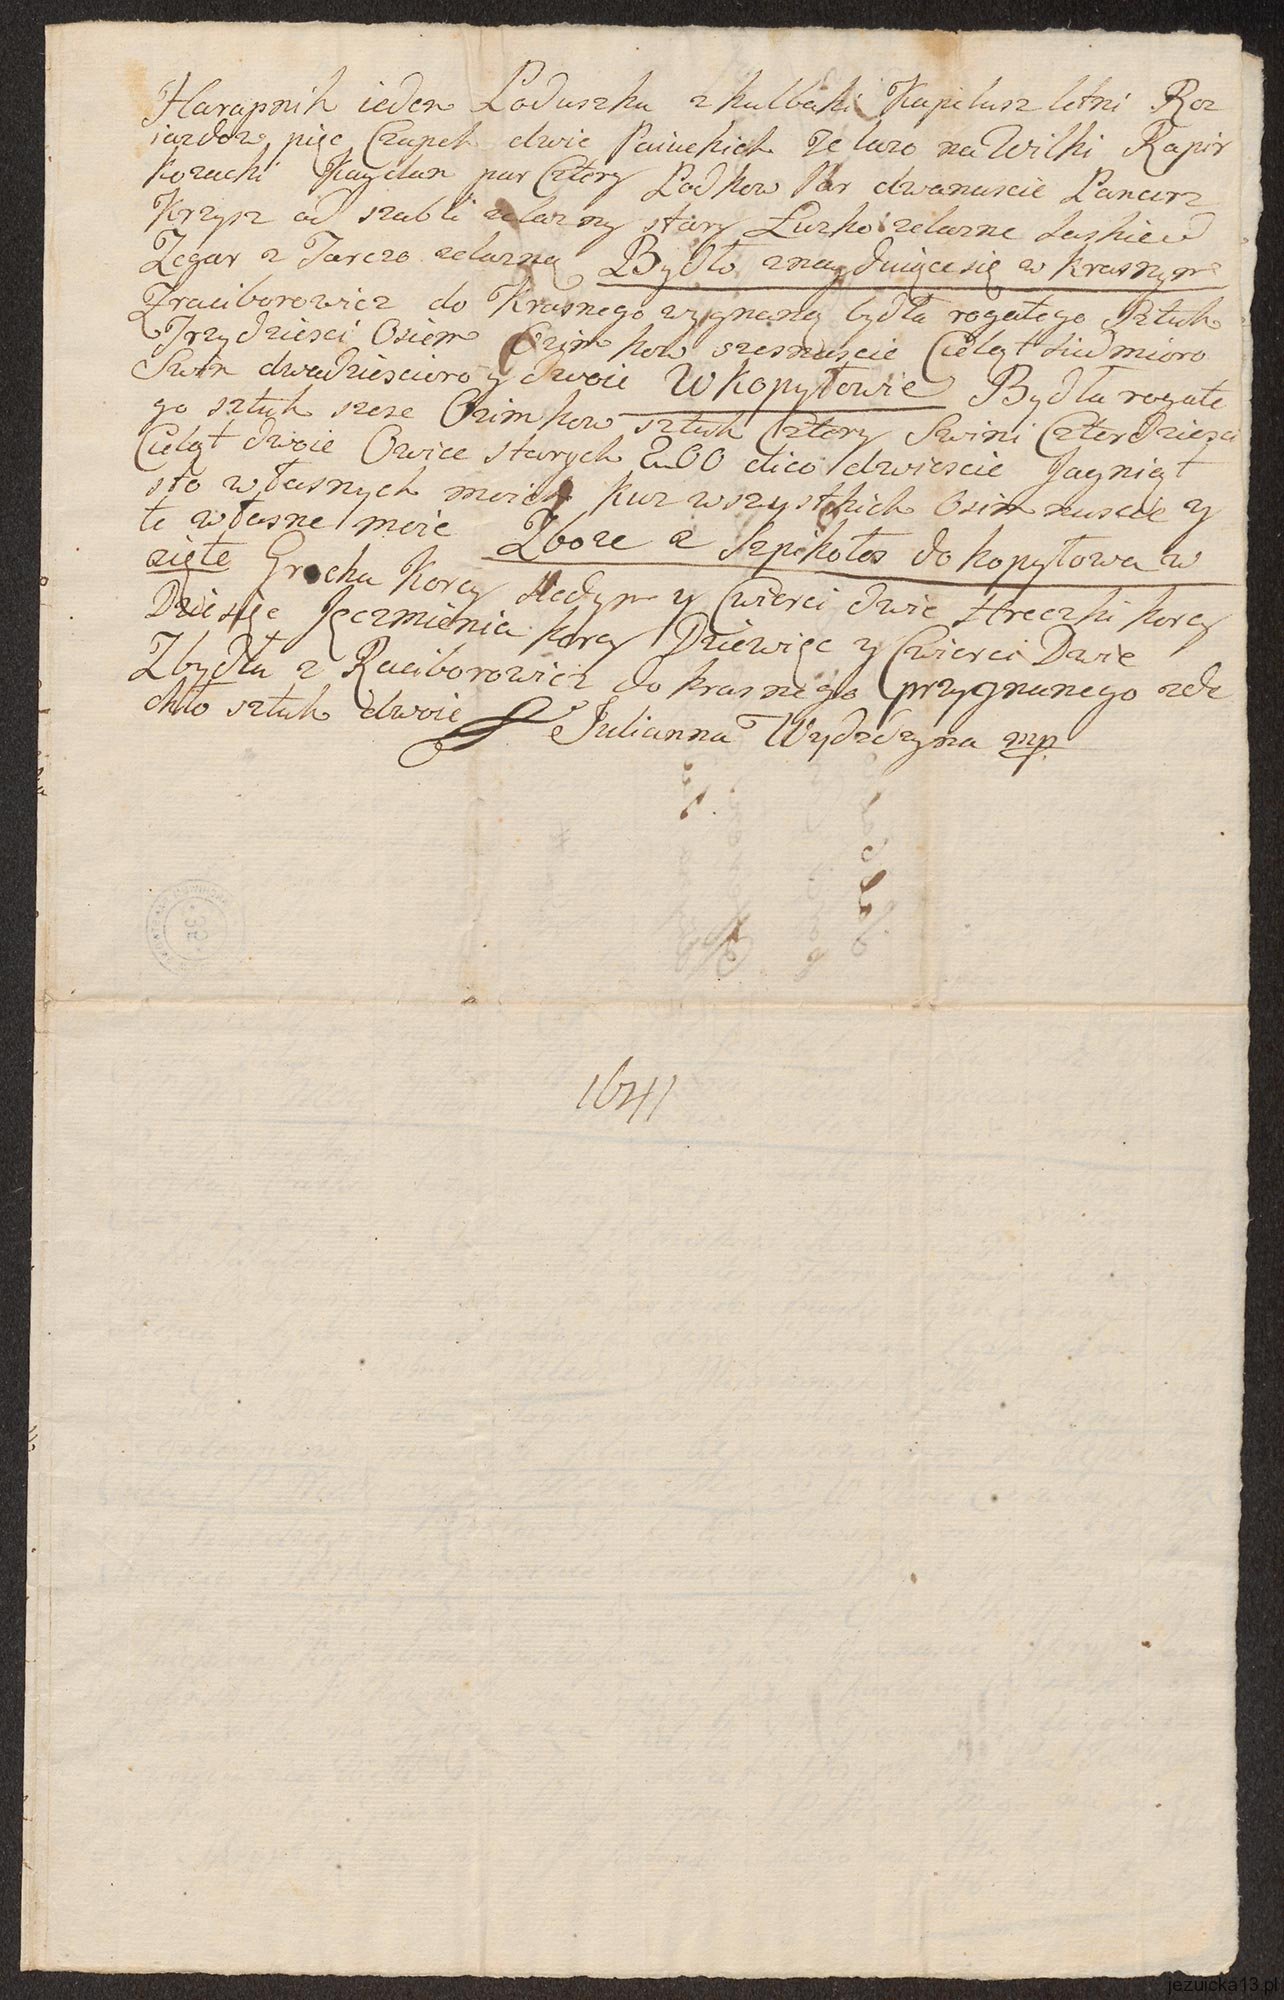 Harapnik ieden Poduszka z kulbaki Kapelusz letni Roz
iazdow pięc Czapek dwie Paiuckich Zelazo na Wilki Rapir
Kozacki Kaydan par Cztery Podkow Par dwanascie Pancerz
Krzysz od szabli zelazny stary Łuzko zelazne Laskiew
Zegar z Tarczo zelazną Bydło znayduiące się w Krasnym
Zraciborowicz do Krasnego wygnaną bydła rogatego sztuk
Trzydziesci Osiem Ozimkow szesnascie Cieląt siedmioro
Swin dwadziescioro y dwoie W Kopyłowie Bydła rogate
go sztuk szesc Ozimkow sztuk Cztery Swini Czterdziesci
Cieląt dwoie Owiec starych 200 dico dwiescie Jagniąt
sto własnych moich kur wszystkich Osimnascie y
te własne moie Zboze z Szpikołos do kopyłowa w
zięte Grochu Korcy siedym y Cwierci dwie Hreczki korcy
Dziesięc Jęczmienia korcy Dziewięc y Cwierci Dwie
Zbydła z Raciborowicz do krasnego przygnanego zde
chło sztuk dwoie
Julianna Wydzdzyna mp
1641
32
jezuicka13.pl